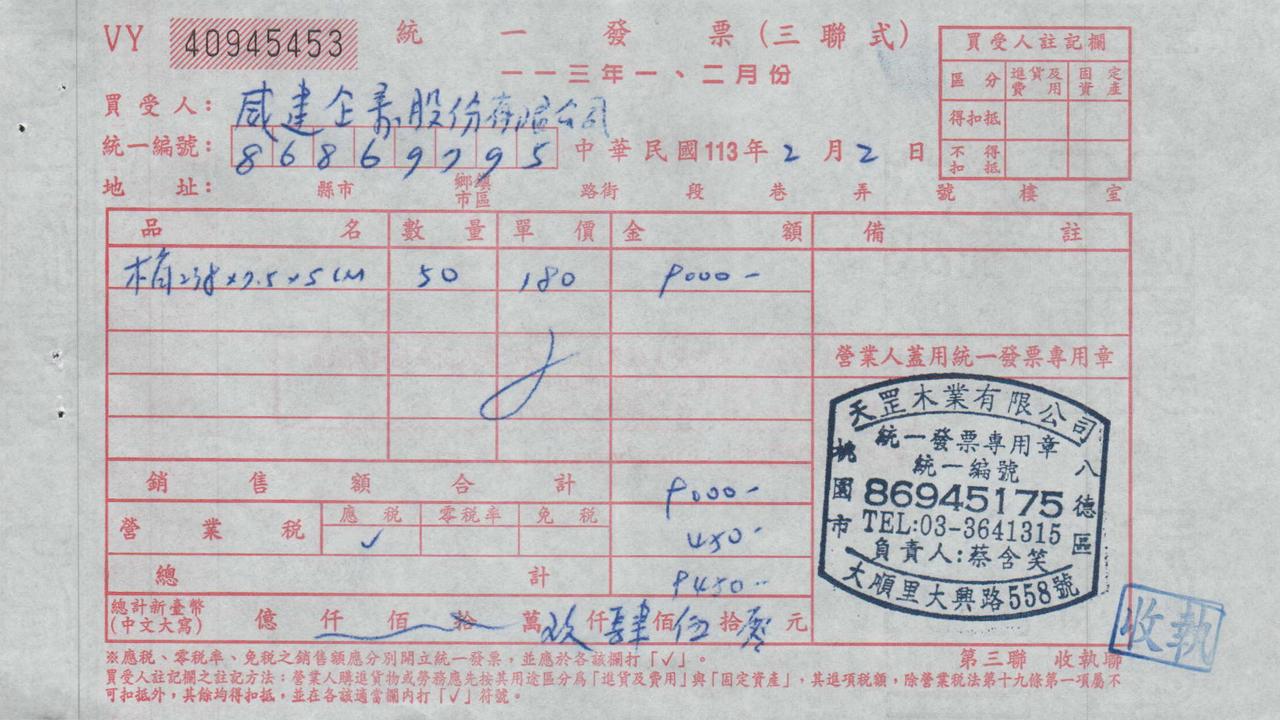 VY 40945453 統一發票(三聯式)
一一三年一、二月份
買受人註記欄
區分 進貨及費用 固定資產
得扣抵
不得扣抵
買受人: 威建企業股份有限公司
統一編號: 86869795 中華民國113年2月2日
地址: 縣市 鄉鎮市區 路街 段 巷 弄 號 樓 室
品名 數量 單價 金額 備註
×7.5×5cm 50 180 9000-
營業人蓋用統一發票專用章
銷售額合計 9000-
營業稅 應稅 ✓ 零稅率 免稅 450-
總計 9450-
總計新臺幣(中文大寫) 億仟佰拾萬玖仟肆佰伍拾零元
天罡木業有限公司
統一發票專用章
統一編號
86945175
TEL:03-3641315
負責人:蔡含笑
桃園市八德區
大順里大興路558號
收執
第三聯 收執聯
※應稅、零稅率、免稅之銷售額應分別開立統一發票,並應於各該欄打「✓」。
買受人註記欄之註記方法:營業人購進貨物或勞務應先按其用途區分為「進貨及費用」與「固定資產」,其進項稅額,除營業稅法第十九條第一項屬不
可扣抵外,其餘均得扣抵,並在各該適當欄內打「✓」符號。